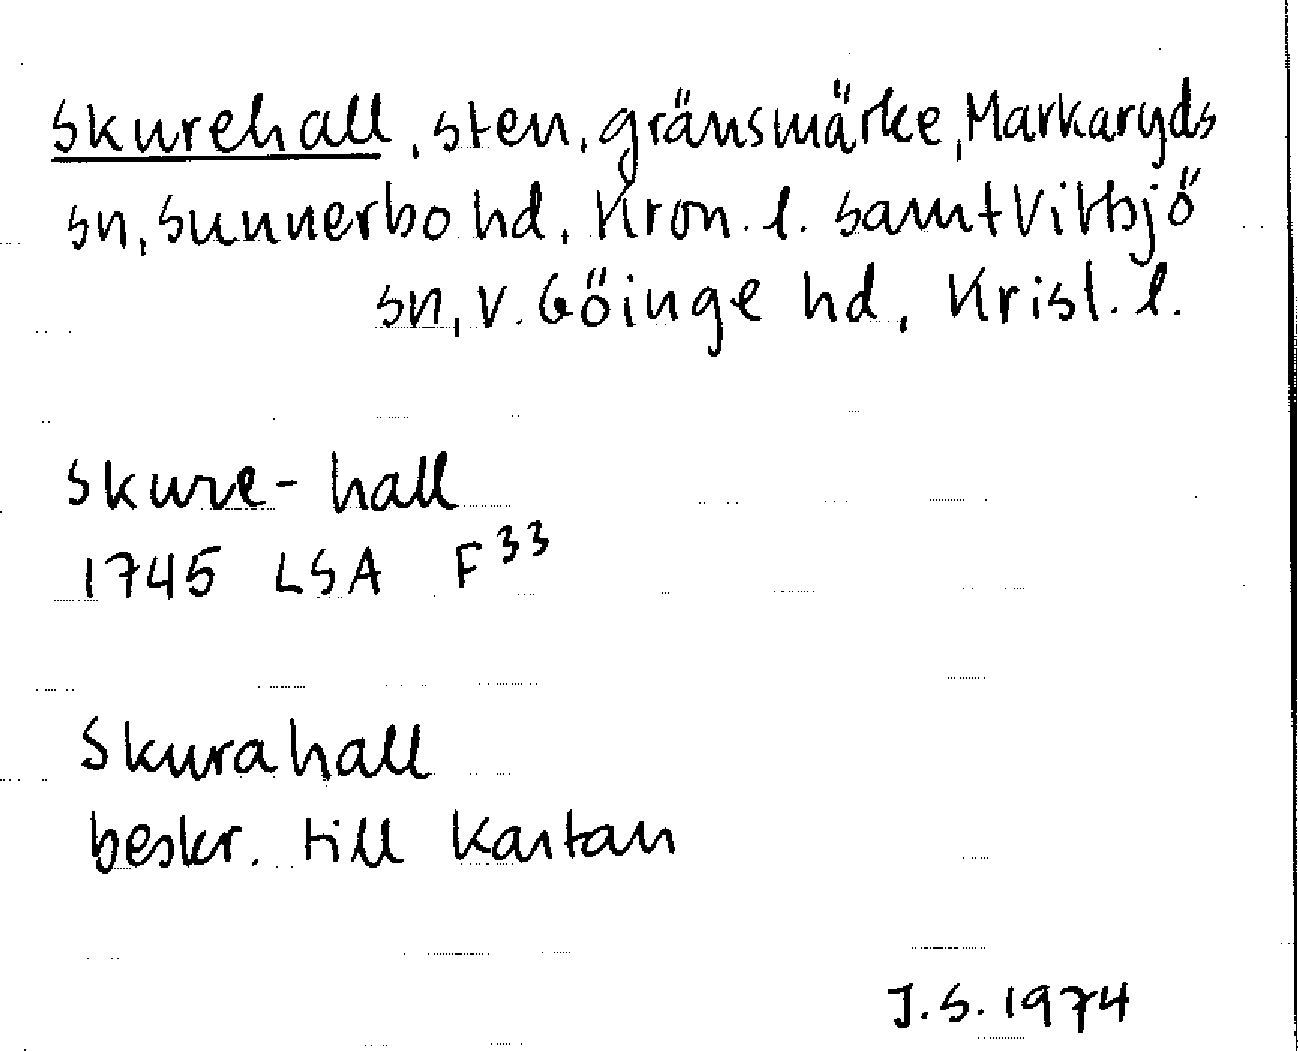 Skurehall, sten, gränsmärke, Markaryds
sn, Sunnerbo hd, Kron. l. samt Vittsjö
sn, V. Göinge hd, Krist. l.
Skure-hall
1745 LSA F 33
Skurahall
beskr. till kartan
J.S. 1974